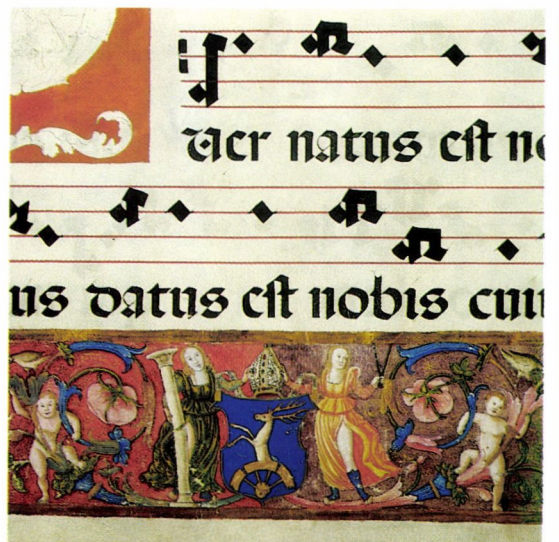 uer natus est no
us datus est nobis cui